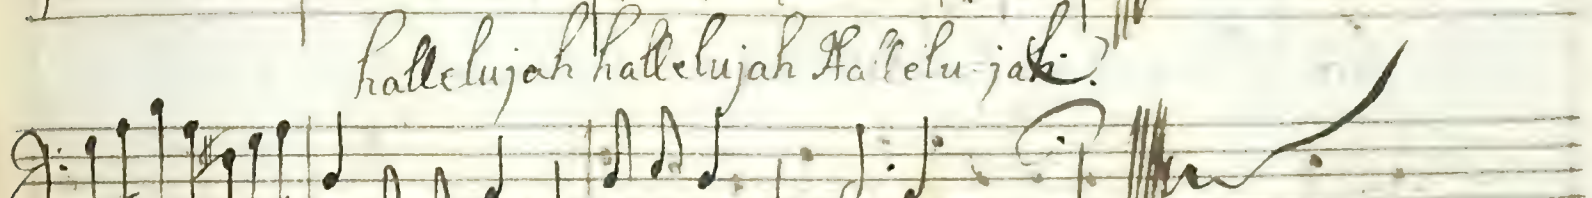 hallelujah hallelujah Hallelu-jah.